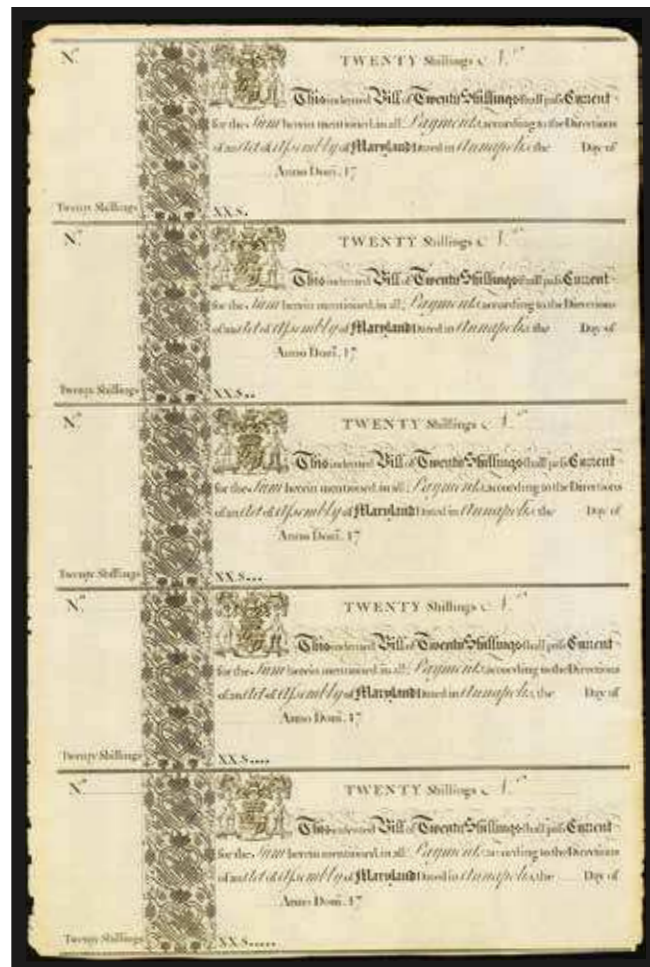 N.º
TWENTY Shillings N.º
This indented Bill of Twenty Shillings shall pass Current
for the Sum herein mentioned, in all Payments, according to the Directions
of an Act of Assembly of Maryland Dated in Annapolis, the Day of
Anno Dom̃. 17
Twenty Shillings XX.S.
N.º
TWENTY Shillings N.º
This indented Bill of Twenty Shillings shall pass Current
for the Sum herein mentioned, in all Payments, according to the Directions
of an Act of Assembly of Maryland Dated in Annapolis, the Day of
Anno Dom̃. 17
Twenty Shillings XX.S..
N.º
TWENTY Shillings N.º
This indented Bill of Twenty Shillings shall pass Current
for the Sum herein mentioned, in all Payments, according to the Directions
of an Act of Assembly of Maryland Dated in Annapolis, the Day of
Anno Dom̃. 17
Twenty Shillings XX.S...
N.º
TWENTY Shillings N.º
This indented Bill of Twenty Shillings shall pass Current
for the Sum herein mentioned, in all Payments, according to the Directions
of an Act of Assembly of Maryland Dated in Annapolis, the Day of
Anno Dom̃. 17
Twenty Shillings XX.S....
N.º
TWENTY Shillings N.º
This indented Bill of Twenty Shillings shall pass Current
for the Sum herein mentioned, in all Payments, according to the Directions
of an Act of Assembly of Maryland Dated in Annapolis, the Day of
Anno Dom̃. 17
Twenty Shillings XX.S.....